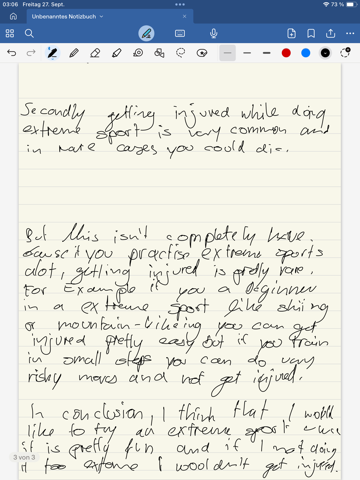 03:06 Freitag 27. Sept.
73 %
Unbenanntes Notizbuch
Secondly getting injured while doing
extreme sport is very common and
in rare cases you could die.
But this isn't completely
cause if you practise extreme sports
alot, getting injured is pretty rare.
For Example if you a Beginner
in a extreme sport like skiing
or mountain-bikeing you can get
injured pretty easy But if you train
in small steps you can do very
risky moves and not get injured.
In conclusion, I think that I would
like to try an extreme sport
it is pretty fun and if I not doing
it too extreme I wouldn't get injured.
3 von 3